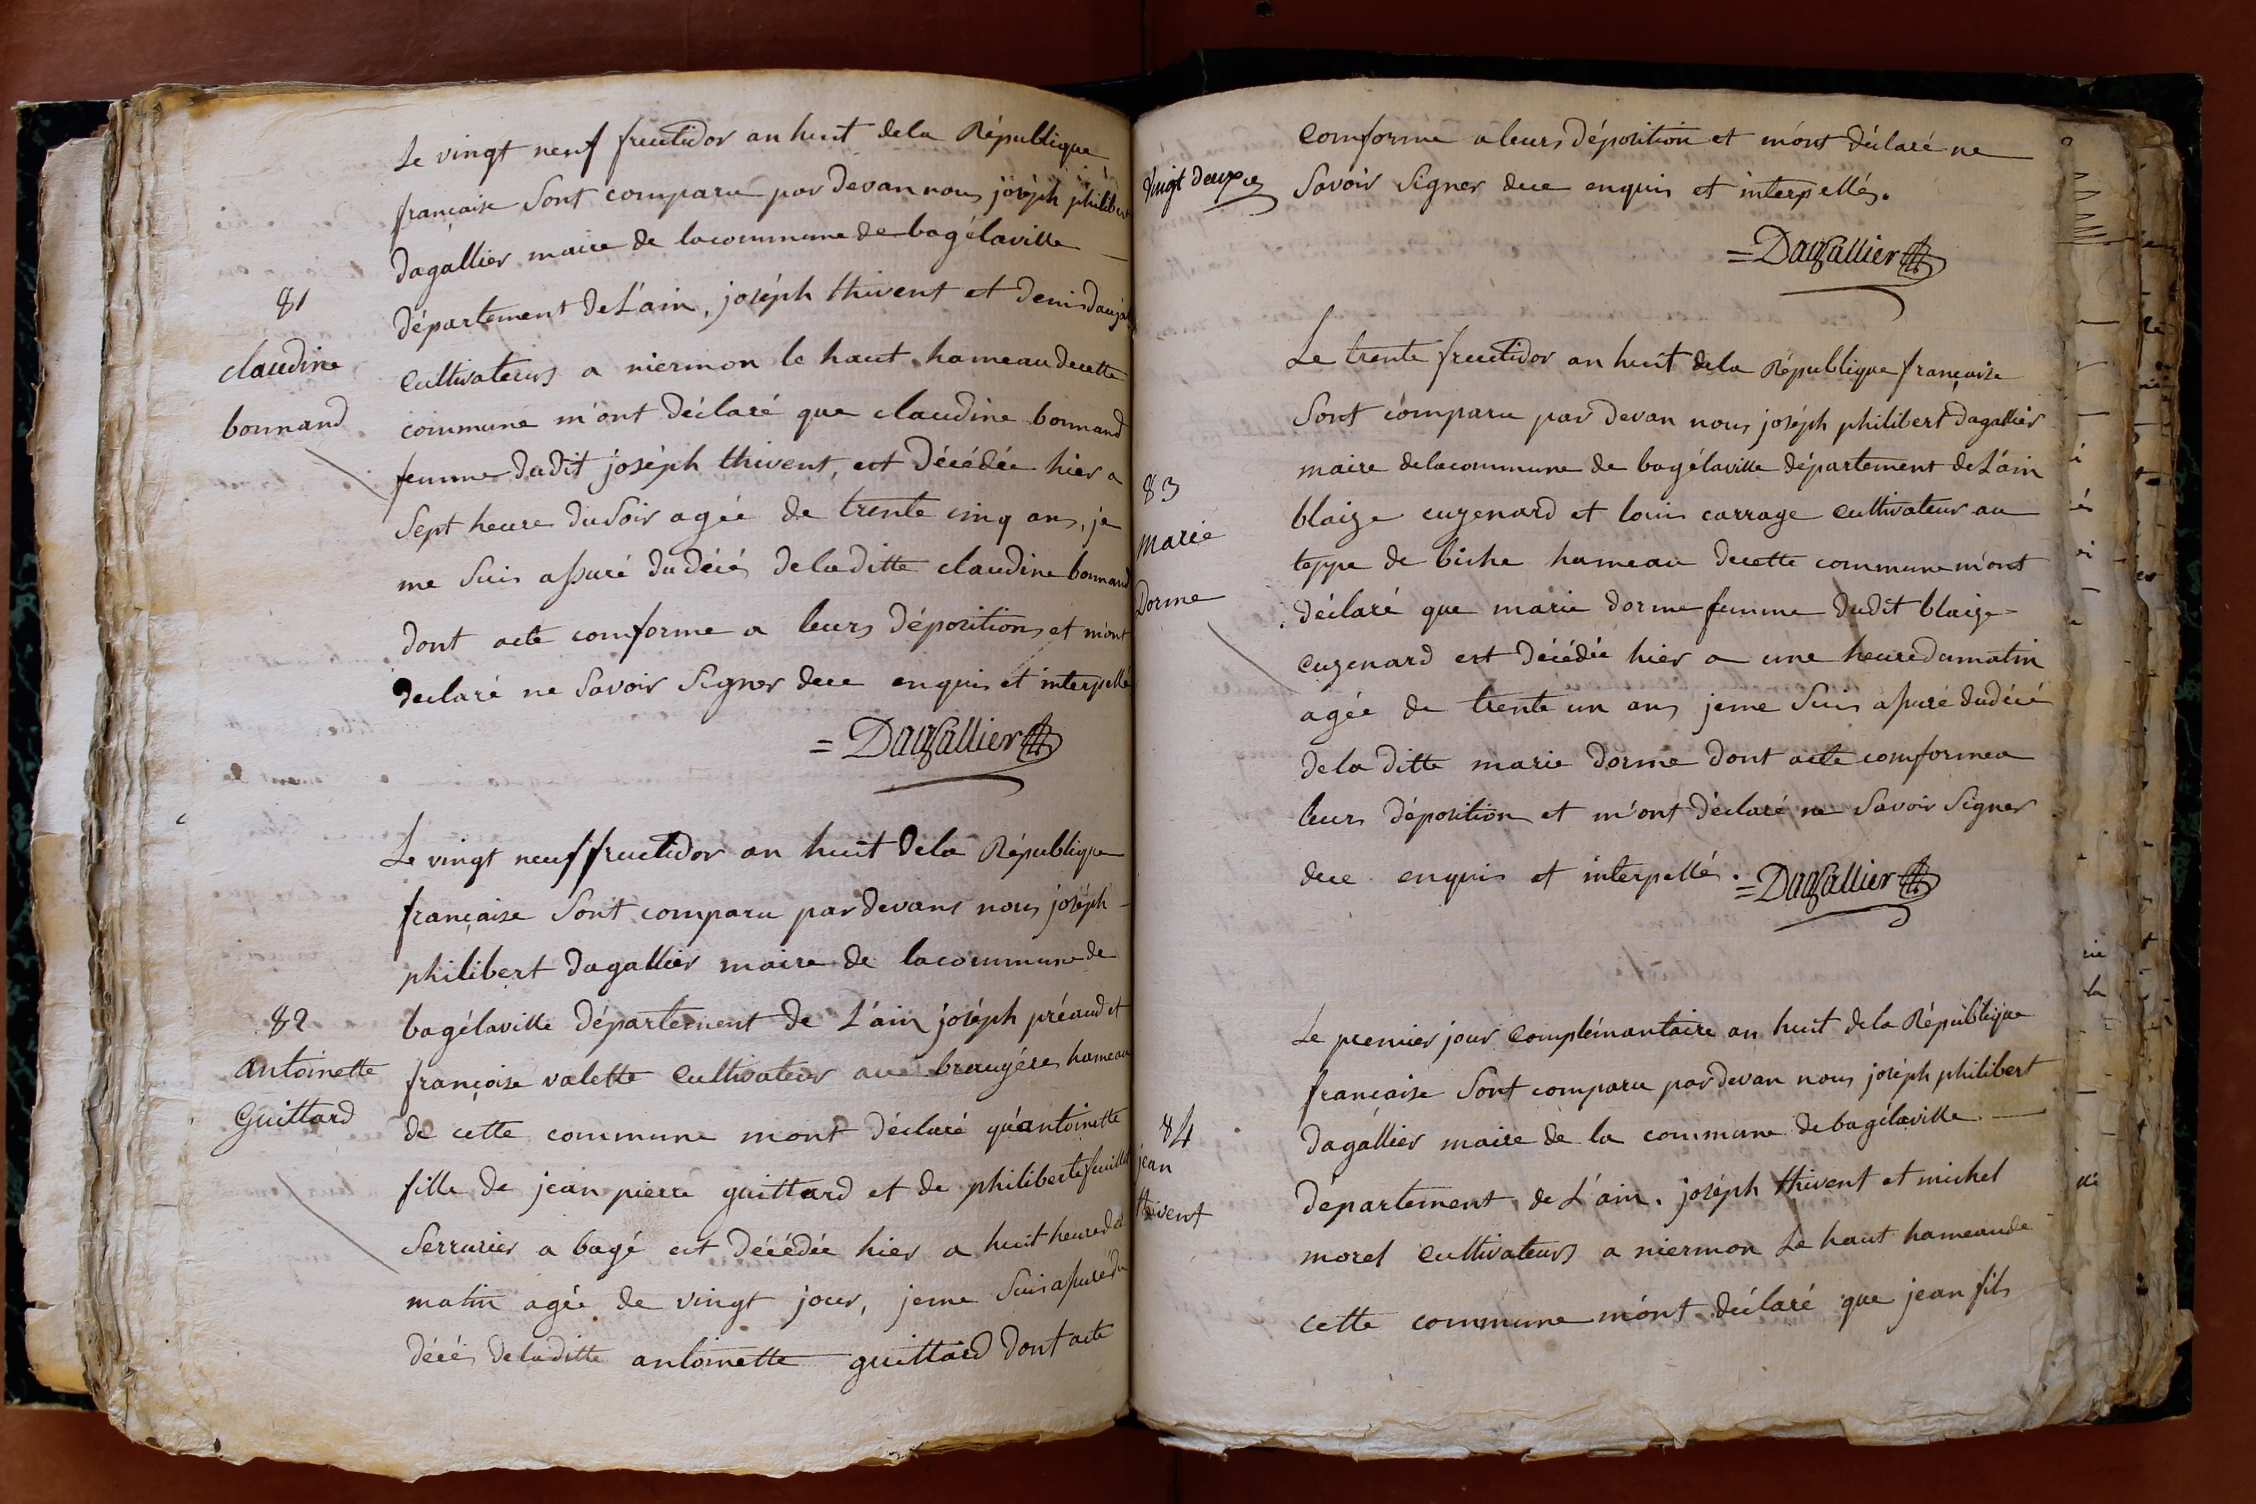 Le vingt neuf fructidor an huit dela République
française Sont comparu par devan nous joséph philibert
dagallier maire de lacommune de bagélaville
département de L'ain, joséph thivent et denis
81
claudine
bonnand
cultivateurs a niermon le haut hameau decette
commune m'ont déclaré que claudine bonnand
femme dudit joséph thivent, est décédée hier a
Sept heure du Soir agée de trente cinq ans, je
me Suis assuré du décés de laditte claudine bonnand
dont acte comforme a leurs dépositions et m'ont
declaré ne Savoir Signer dece enquis et interpellé
= Dagallier
Le vingt neuf fructidor an huit dela République
française Sont comparu pardevant nous joséph
philibert dagallier maire de lacommune de
82
antoinette
Guittard
bagélaville département de L'ain joséph préaud et
françoise valette cultivateur aux bruyéres hameau
de cette commune mont déclaré qu'antoinette
fille de jean pierre guittard et de philiberte
Serrurier a bagé est décédée hier a huit heure
matin agée de vingt jour, jeme Suis assuré du
décés deladitte antoinette guittard dont acte
vingt deux
comforme a leurs déposition et m'ont déclaré ne
Savoir Signer dece enquis et interpellés.
= Dagallier
Le trente fructidor an huit dela République française
Sont comparu par devan nous joséph philibert dagallier
83
marie
Dorme
maire delacommune de bagélaville département de L'ain
blaize cuzenard et louis carrage cultivateur au
teppe de biche hameau decette commune m'ont
déclaré que marie dorme femme dudit blaize
cuzenard est décédée hier a une heure du matin
agée de trente un ans jeme Suis assuré dudécé
dela ditte marie dorme dont acte comforme a
leurs déposition et m'ont déclaré ne Savoir Signer
dece enquis et interpellé. = Dagallier
Le premier jour complémantaire an huit dela République
française Sont comparu pardevan nous joséph philibert
84
jean
thivent
dagallier maire de la commune de bagélaville
département de L'ain. joséph thivent et michel
morel cultivateurs a niermon Le haut hameau de
cette commune m'ont déclaré que jean fils